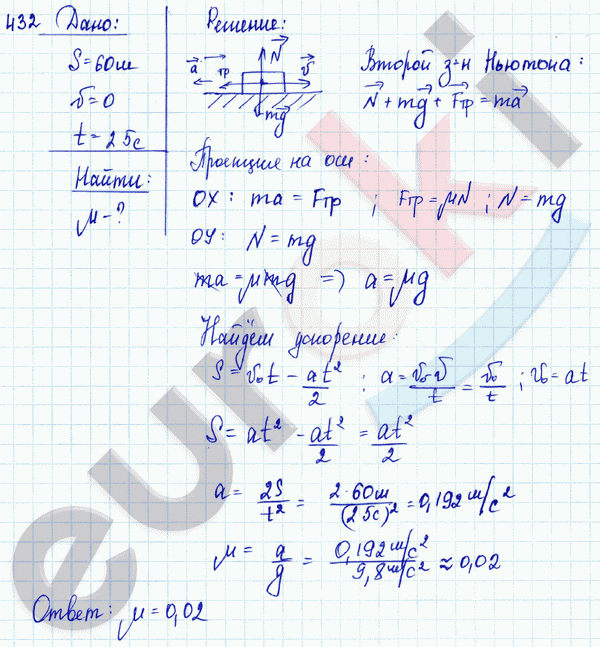 432 Дано:
S = 60м
v = 0
t = 25с
Найти:
μ - ?
Решение:
N
a тр v
mg
Второй з-н Ньютона:
N + mg + Fтр = ma
Проекции на оси:
OX: ma = Fтр ; Fтр = μN ; N = mg
OY: N = mg
ma = μmg => a = μg
Найдём ускорение:
S = v₀t - at²/2 ; a = (v₀ - v)/t = v₀/t ; v₀ = at
S = at² - at²/2 = at²/2
a = 2S/t² = 2·60м/(25с)² = 0,192 м/с²
μ = a/g = 0,192 м/с² / 9,8 м/с² ≈ 0,02
Ответ: μ = 0,02
euroki